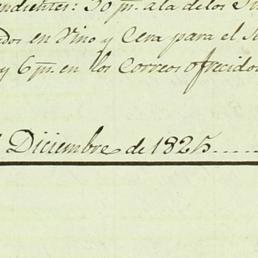 ndientes: 30 p.s a la de los
dos en Vino y Cera para el
y 6 p.s en los Correos ofrecidos
Diciembre de 1825.....